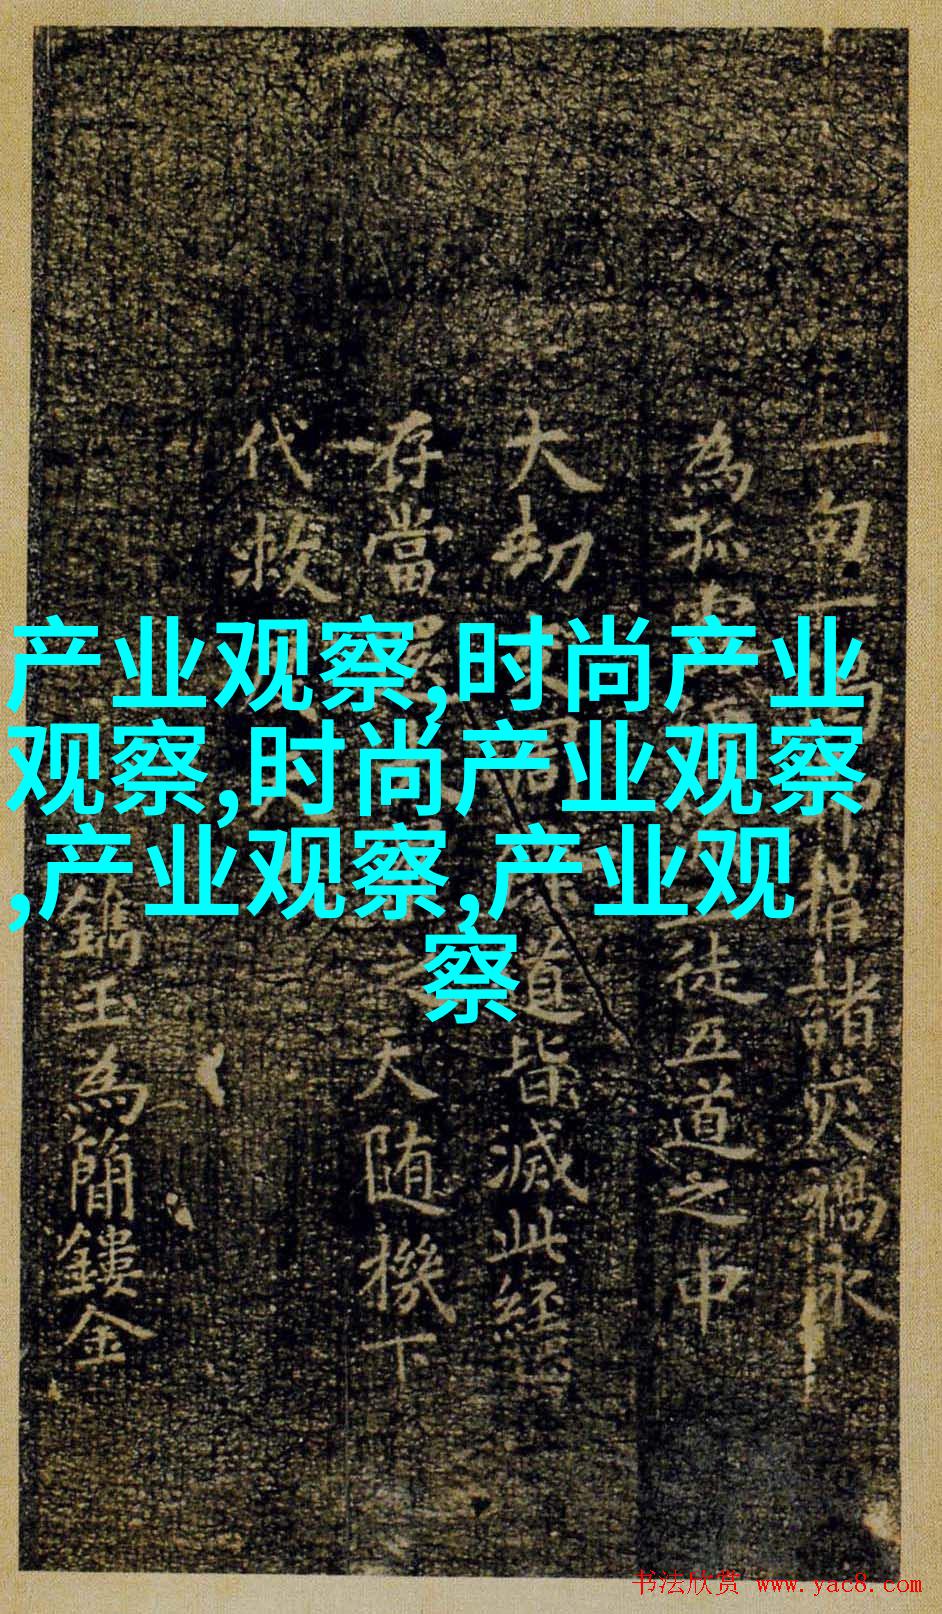 产业观察,时尚产业
观察,时尚产业观察
,产业观察,产业观
察
一句一諸灾禍永
為徒五道之中
大劫道皆滅此經
存當之天随機下
代救
鐫玉為簡鏤金
书法欣赏 www.yac8.com